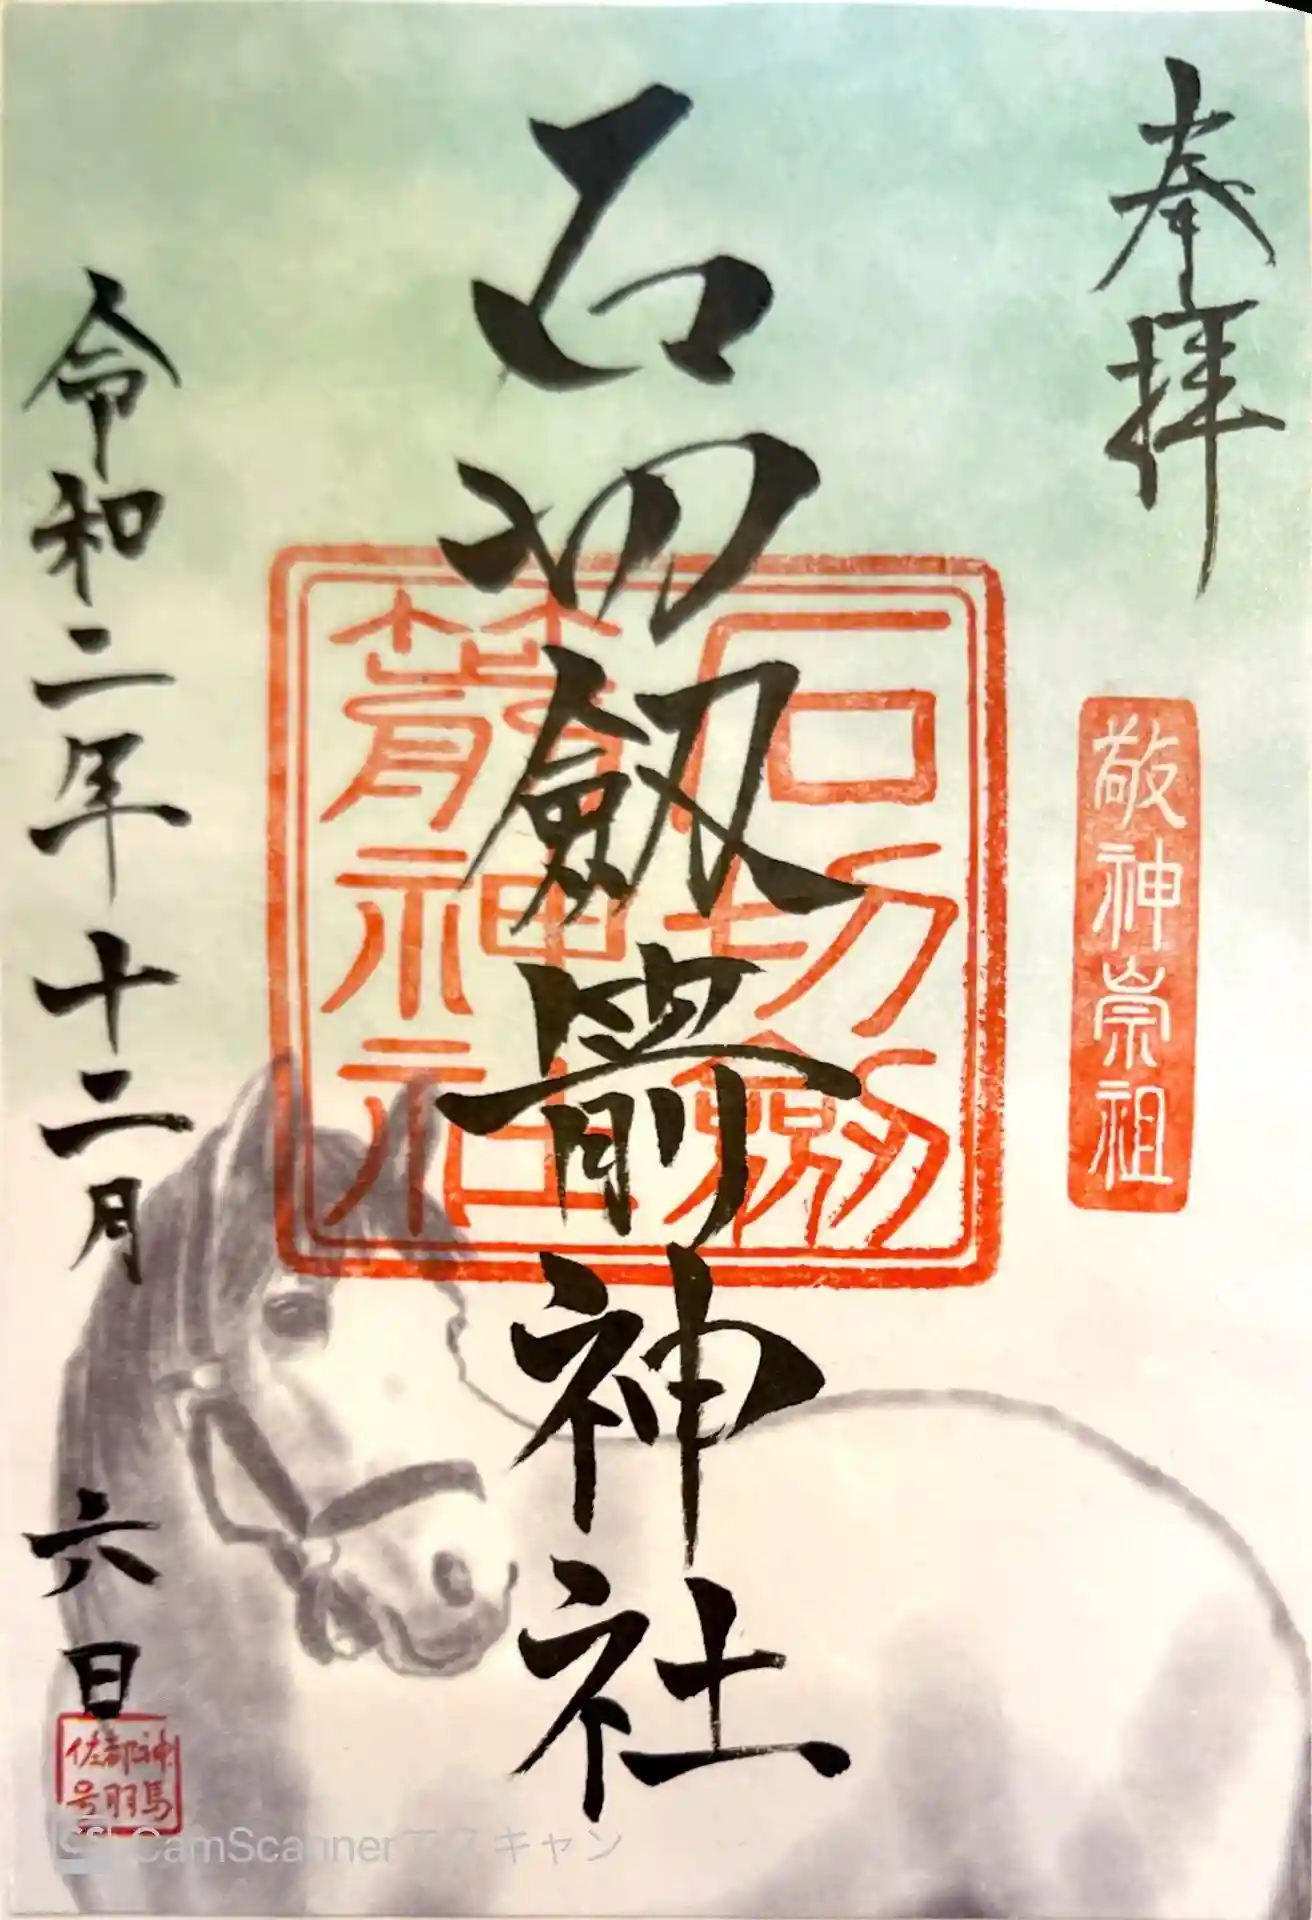 奉拝
敬神崇祖
石切劔箭神社
石切劔
箭神社
令和二年十二月六日
神馬
都羽
佐号
CamScannerでスキャン